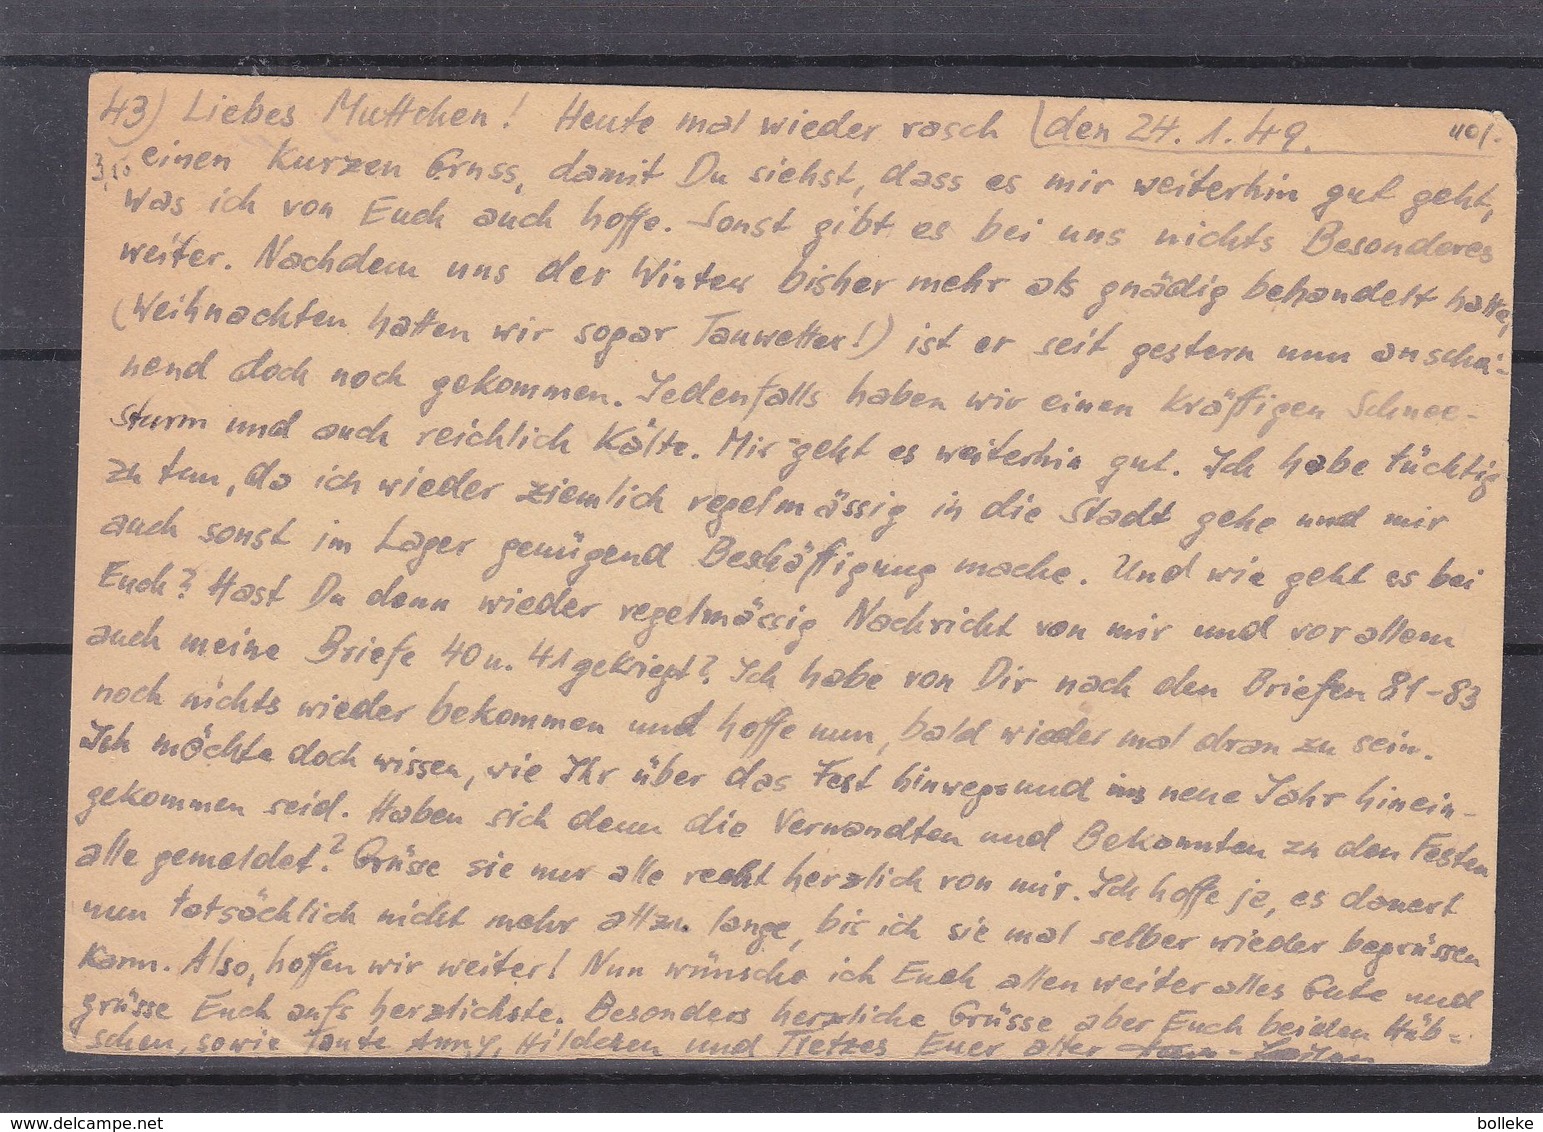 43) Liebes Muttchen! Heute mal wieder rasch den 24. 1. 49.
3,10 einen kurzen Gruss, damit Du siehst, dass es mir weiterhin gut geht,
was ich von Euch auch hoffe. Sonst gibt es bei uns nichts Besonderes
weiter. Nachdem uns der Winter bisher mehr als gnädig behandelt hatte,
(Weihnachten hatten wir sogar Tauwetter!) ist er seit gestern nun anschei-
nend doch noch gekommen. Jedenfalls haben wir einen kräftigen Schnee-
sturm und auch reichlich Kälte. Mir geht es weiterhin gut. Ich habe tüchtig
zu tun, da ich wieder ziemlich regelmässig in die Stadt gehe und mir
auch sonst im Lager genügend Beschäftigung mache. Und wie geht es bei
Euch? Hast Du denn wieder regelmässig Nachricht von mir und vor allem
auch meine Briefe 40 u. 41 gekriegt? Ich habe von Dir nach den Briefen 81-83
noch nichts wieder bekommen und hoffe nun, bald wieder mal dran zu sein.
Ich möchte doch wissen, wie Ihr über das Fest hinweg und ins neue Jahr hinein-
gekommen seid. Haben sich denn die Verwandten und Bekannten zu den Festen
alle gemeldet? Grüsse sie nur alle recht herzlich von mir. Ich hoffe ja, es dauert
nun tatsächlich nicht mehr allzu lange, bis ich sie mal selber wieder begrüssen
kann. Also, hoffen wir weiter! Nun wünsche ich Euch allen weiter alles Gute und
grüsse Euch aufs herzlichste. Besonders herzliche Grüsse aber Euch beiden Hüb-
schen, sowie Tante Anny, Hildchen und Tietzes Euer alter
bolleke
www.delcampe.net